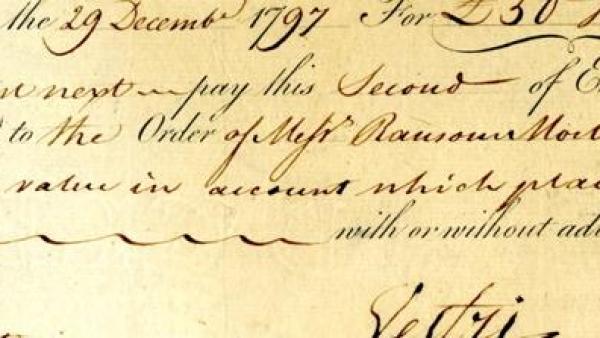 the 29 Decemb<sup>r</sup> 1797 For £50
next pay this Second of E
to the Order of Mess<sup>rs</sup> Ransom Mor
value in account which plac
with or without adv